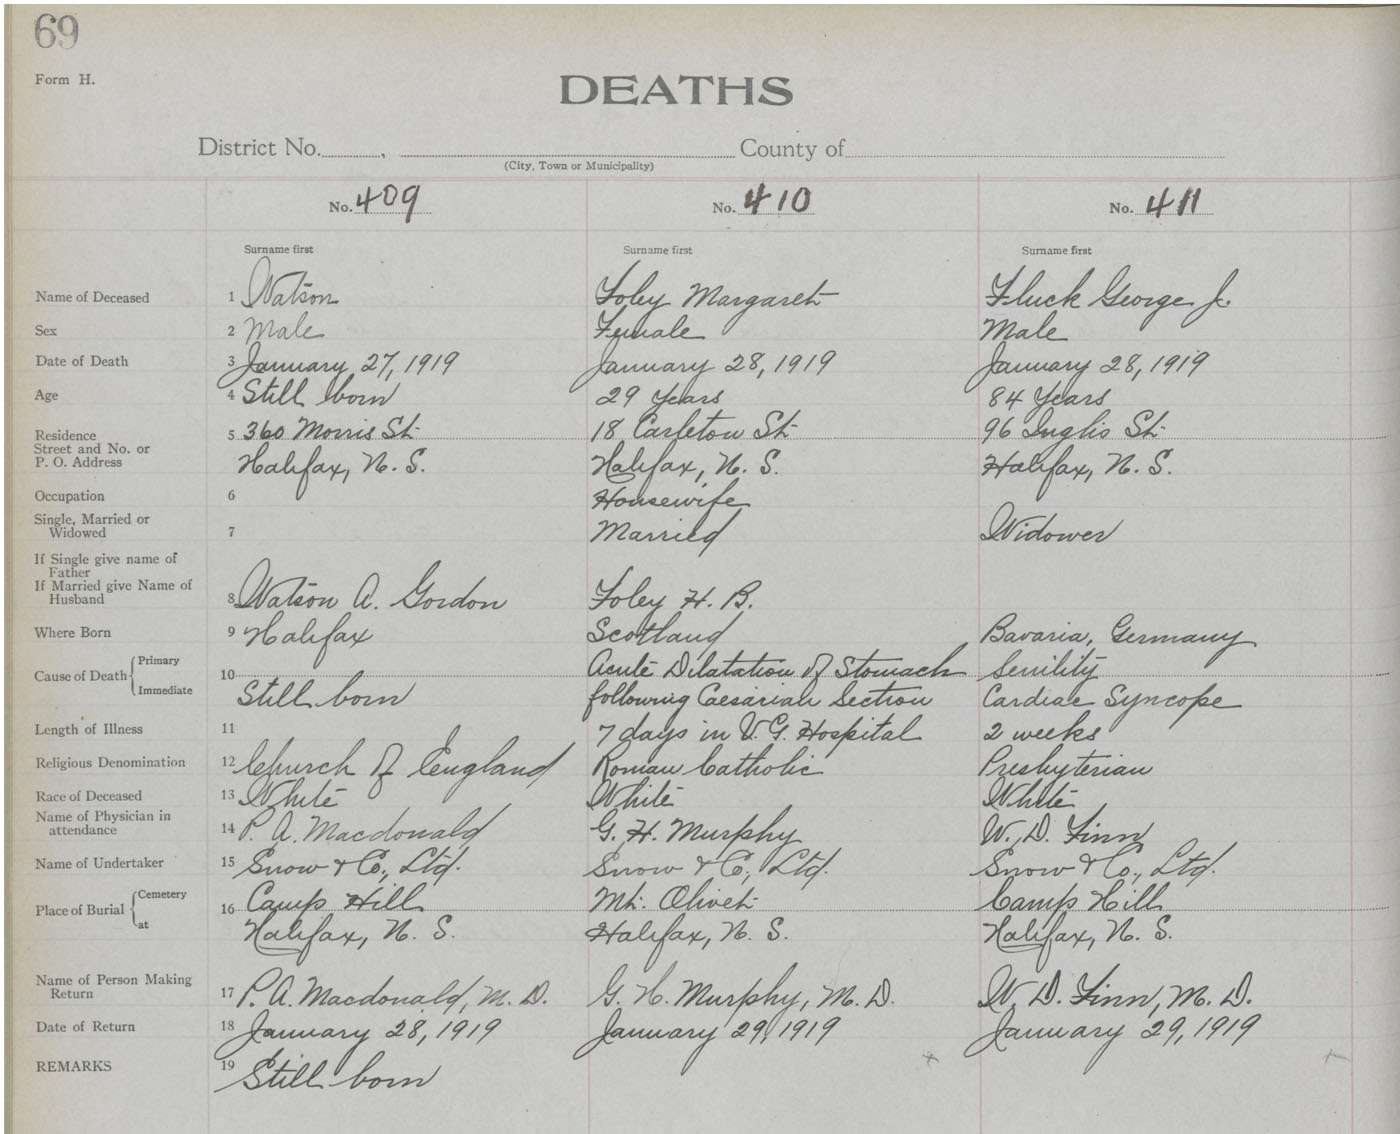 69
Form H.
DEATHS
District No. , County of
(City, Town or Municipality)
No. 409 No. 410 No. 411
Surname first Surname first Surname first
Name of Deceased 1 Watson Foley Margaret Fluck George J.
Sex 2 Male Female Male
Date of Death 3 January 27, 1919 January 28, 1919 January 28, 1919
Age 4 Still born 29 Years 84 Years
Residence 5 360 Morris St. 18 Carleton St. 96 Inglis St.
Street and No. or
P. O. Address Halifax, N. S. Halifax, N. S. Halifax, N. S.
Occupation 6 Housewife
Single, Married or
Widowed 7 Married Widower
If Single give name of
Father
If Married give Name of
Husband 8 Watson A. Gordon Foley H. B.
Where Born 9 Halifax Scotland Bavaria, Germany
Cause of Death { Primary 10 Acute Dilatation of Stomach Senility
Immediate Still born following Caesarian Section Cardiac Syncope
Length of Illness 11 7 days in V. G. Hospital 2 weeks
Religious Denomination 12 Church of England Roman Catholic Presbyterian
Race of Deceased 13 White White White
Name of Physician in
attendance 14 P. A. Macdonald G. H. Murphy W. D. Finn
Name of Undertaker 15 Snow & Co., Ltd. Snow & Co., Ltd. Snow & Co., Ltd.
Place of Burial { Cemetery 16 Camp Hill Mt. Olivet Camp Hill
at Halifax, N. S. Halifax, N. S. Halifax, N. S.
Name of Person Making
Return 17 P. A. Macdonald, M. D. G. H. Murphy, M. D. W. D. Finn, M. D.
Date of Return 18 January 28, 1919 January 29, 1919 January 29, 1919
REMARKS 19 Still born